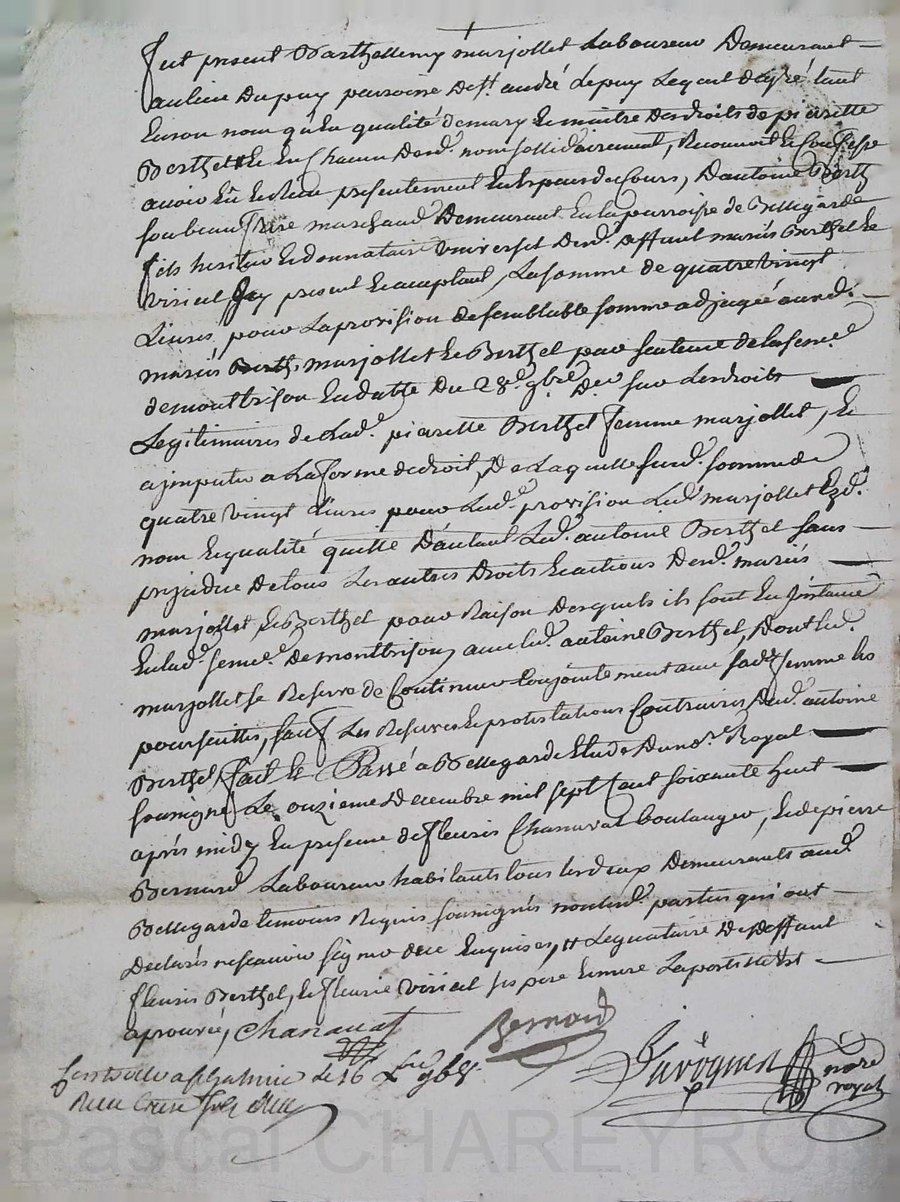 fut present Barthellemy marjollet Laboureur Demeurant
au lieu Dupuy paroisse de st. andré Lepuy Lequel degré tant
En son nom qu'En qualité de mary Et maitre Des droits de pierrette
Berthet Et En Chacun Desd. noms sollidairement, Reconnoit Et Confesse
avoir Eu Et Reçu presentement En Espece de Cours, D'antoine Berth
son beau frere marchand Demeurant En la parroisse de Bellegarde
fils heritier Et donnataire universel Desd. deffunt mariés Berthet Et
Viricel Jcy present Et acceptant, La somme de quatre vingt
Livres, pour La provision de semblable somme adjugée auxd.
mariés marjollet Et Berthet par sentence de la senec.ée
de montbrison En datte Du 28e. 9bre. Der. sur Les droits
Legitimaires de Lad. pierrette Berthet femme marjollet, Et
a jmputer a La forme de droit, De Laquelle susd. somme de
quatre vingt Livres pour Lad. provision Led. marjollet Ezd.
nom Et qualité quitte D'autant Led. antoine Berthet sans
prejudice De tous Les autres Droits Et actions Desd. mariés
marjollet Et Berthet pour Raison Desquels ils sont En Jnstance
En lad. senec.ée De montbrison avec led. antoine Berthet, Dont led.
marjollet se Reserve de Continuer Conjointement avec sad. femme les
poursuittes, sauf Les Reserves Et protestations Contraires Dud. antoine
Berthet, fait Et Passé a Bellegarde Etude Du nore. Royal
soussigné Le onzieme Decembre mil sept Cent soixante huit
après midy En presence de fleuris Chanavat boulanger, Et de pierre
Bernard Laboureur habitants tous les deux Demeurants aud.
Bellegarde temoins Requis soussignés non lesd. parties qui ont
Declarés ne scavoir signer de ce Enquises, Deffunt
fleuris Berthet, Et fleurie Viricel ses pere Et mere La postille Est
aprouvée, Chanavat
Bernard
nore
royal
le 16 Xbre 1768
Reçu
Pascal CHAREYRON